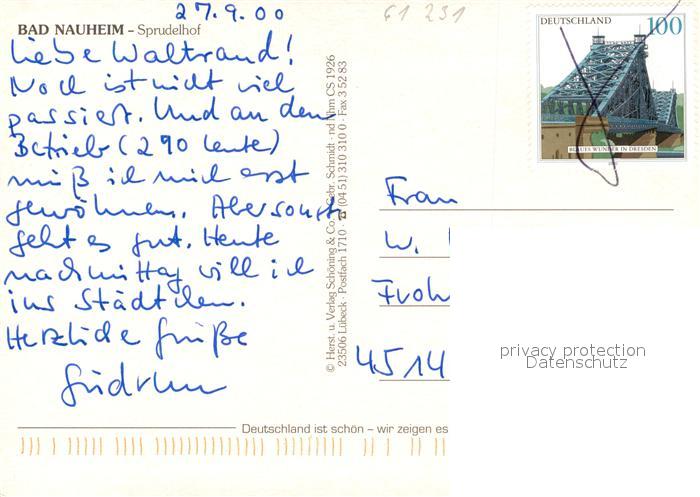 27.9.00
61 231
BAD NAUHEIM – Sprudelhof
Liebe Waltraud!
Noch ist nicht viel
passiert. Und an den
Betrieb (290 Leute)
muß ich mich erst
gewöhnen. Aber sonst
geht es gut. Heute
nachmittag will ich
ins Städtchen.
Herzliche Grüße
Gudrun
© Herst. u. Verlag Schöning & Co. Gebr. Schmidt
23506 Lübeck · Postfach 1710 · ☎ (04 51) 310 310 0 · Fax 3 52 83
CS 1926
DEUTSCHLAND 100
BLAUES WUNDER IN DRESDEN
Frau
W.
Froh
4514
privacy protection
Datenschutz
Deutschland ist schön – wir zeigen es